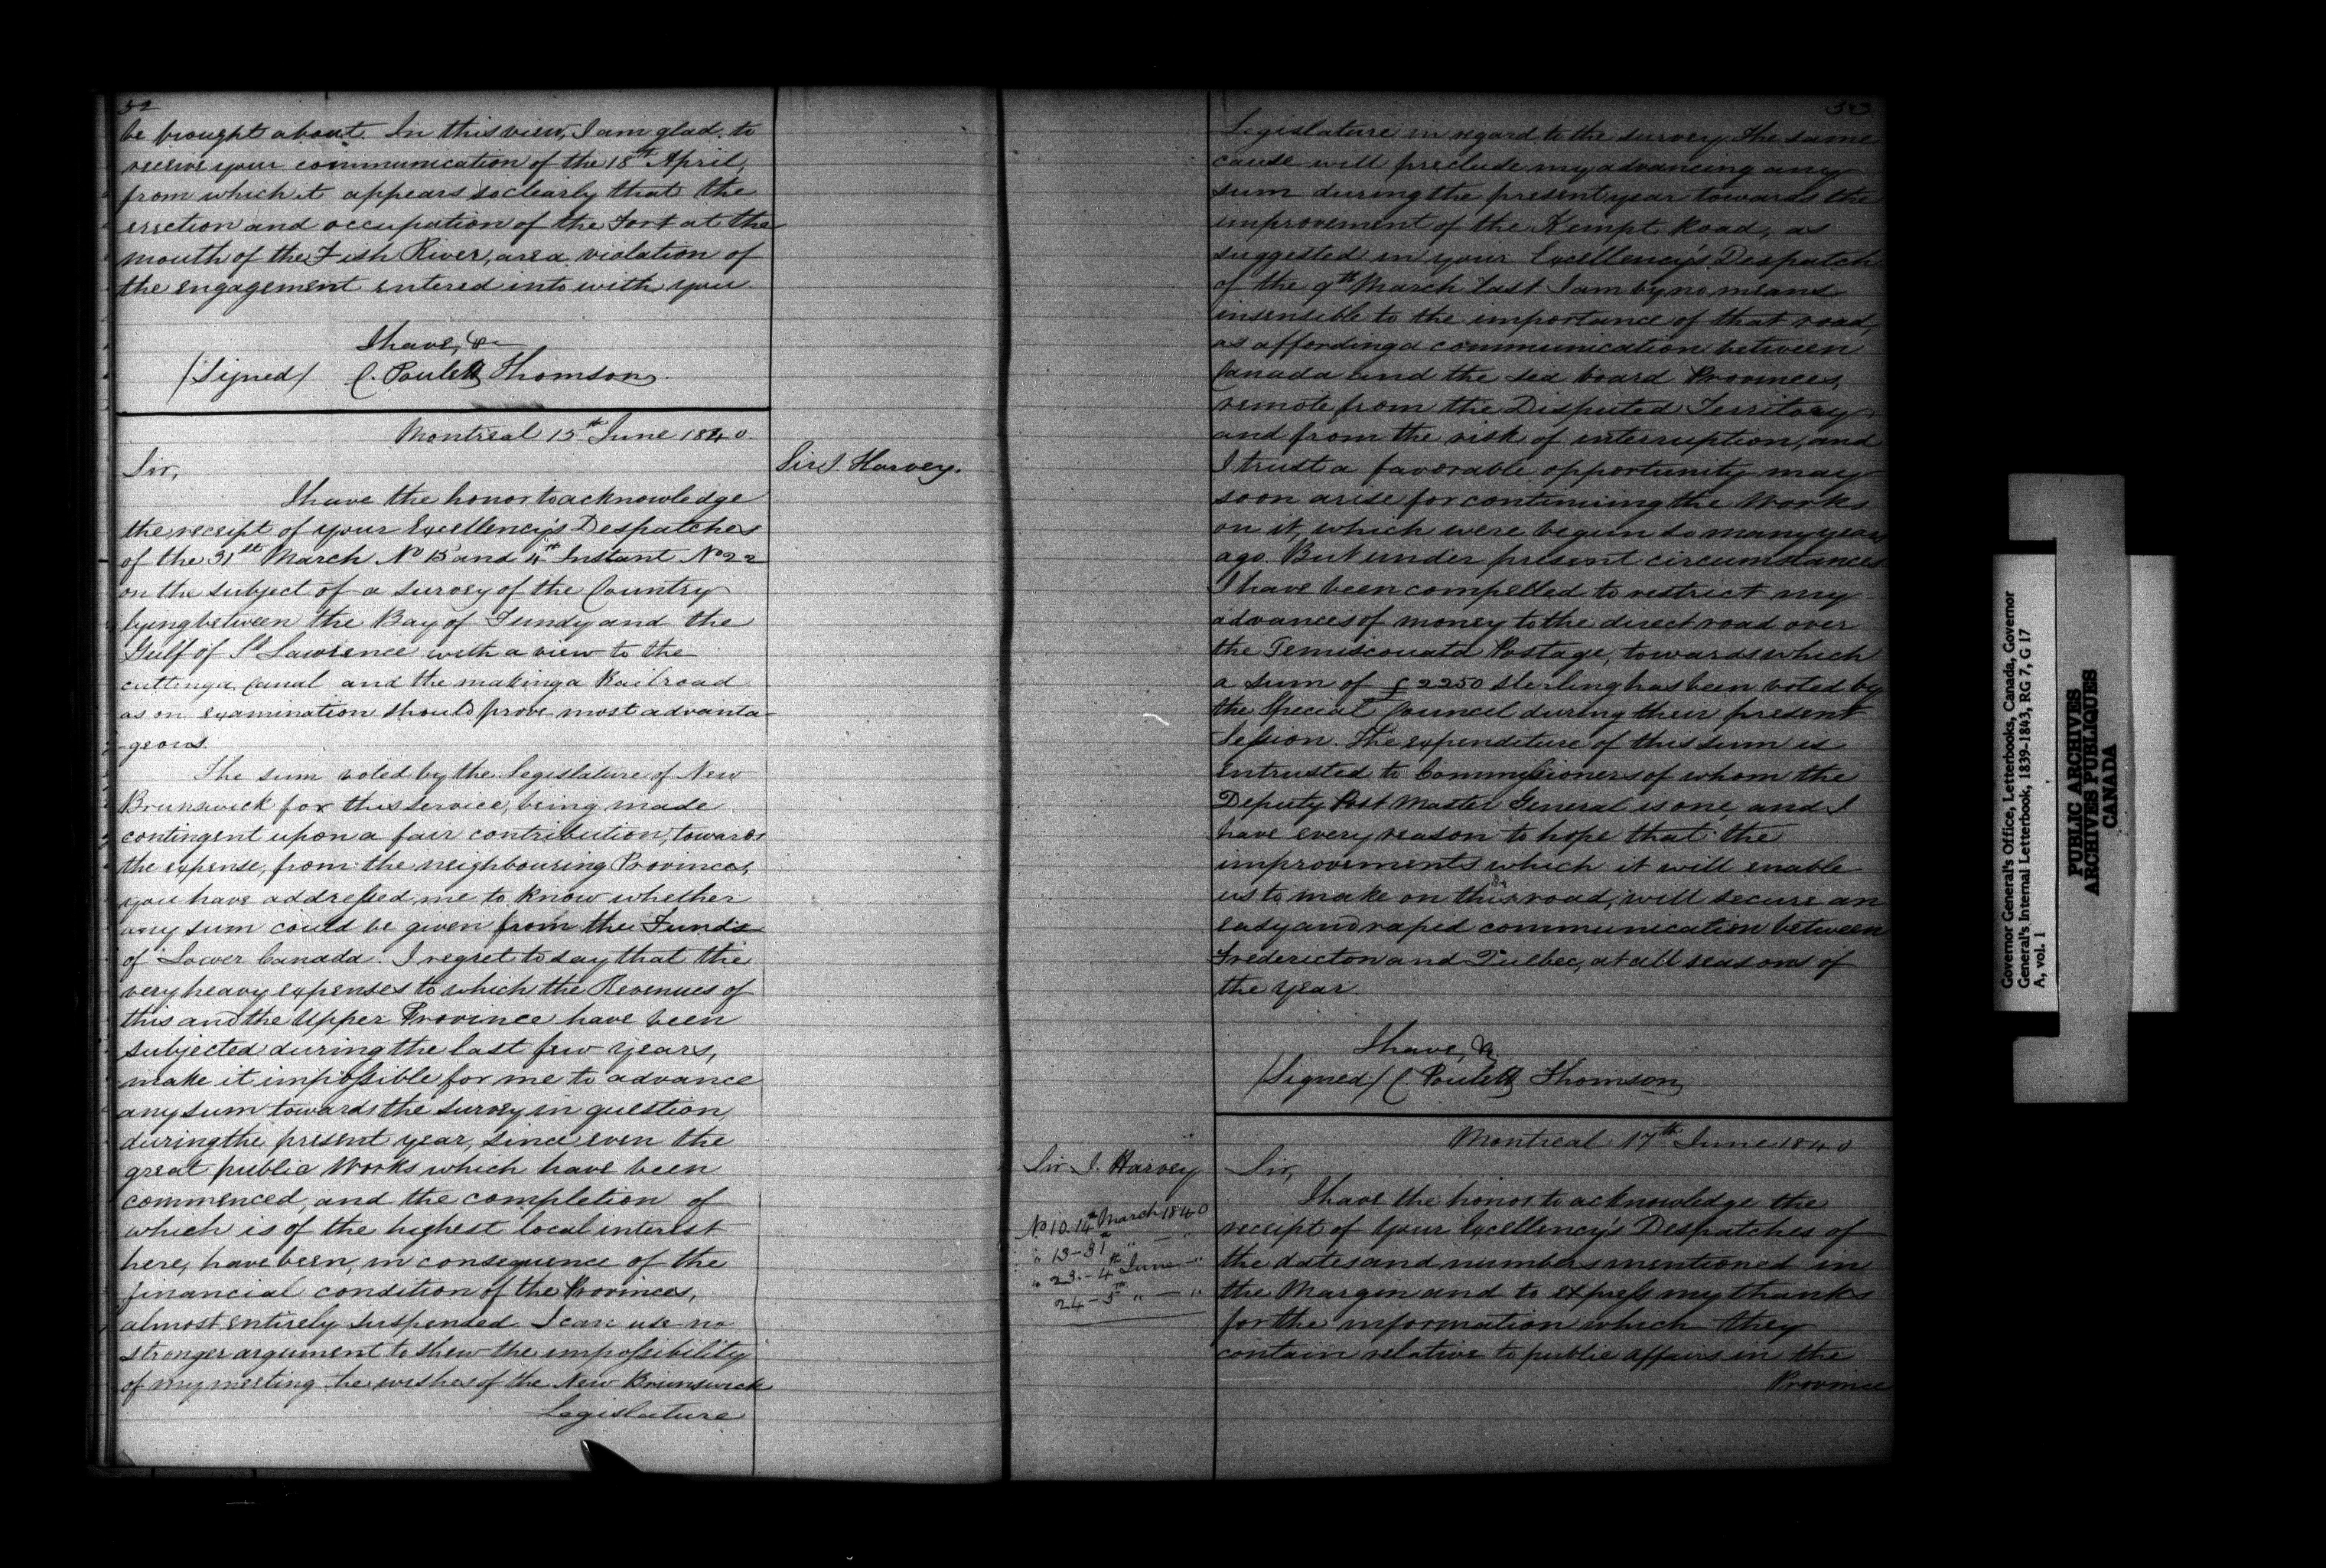 52
be brought about. In this view, I am glad to
receive your communication of the 18th April,
from which it appears so clearly that the
erection and occupation of the Fort at the
mouth of the Fish River, are a violation of
the engagement entered into with you
I have, &c
/Signed/ C. Poulett Thomson.
Montreal 15th June 1840.
Sir J. Harvey.
Sir,
I have the honor to acknowledge
the receipt of your Excellency's Despatches
of the 31st March No 15 and 4th Instant No 22
on the subject of a survey of the Country
lying between the Bay of Fundy and the
Gulf of St Lawrence with a view to the
cutting a Canal and the making a Railroad
as on examination should prove most advanta-
-geous.
The sum voted by the Legislature of New
Brunswick for this service, being made
contingent upon a fair contribution, towards
the expense, from the neighbouring Provinces,
you have addressed me to know whether
any sum could be given from the Funds
of Lower Canada. I regret to say that the
very heavy expenses to which the Revenues of
this and the Upper Province have been
subjected during the last few years,
make it impossible for me to advance
any sum towards the survey in question,
during the present year, since even the
great public Works which have been
commenced, and the completion of
which is of the highest local interest
here, have been, in consequence of the
financial condition of the Provinces,
almost entirely suspended. I can use no
stronger argument to shew the impossibility
of my meeting the wishes of the New Brunswick
Legislature
53
Legislature in regard to the survey. The same
cause will preclude my advancing any
sum during the present year towards the
improvement of the Kempt Road, as
suggested in your Excellency's Despatch
of the 9th March last. I am by no means
insensible to the importance of that road,
as affording a communication between
Canada and the sea board Provinces,
remote from the Disputed Territory
and from the risk of interruption, and
I trust a favorable opportunity may
soon arise for continuing the Works
on it, which were begun so many years
ago. But under present circumstances
I have been compelled to restrict my
advances of money to the direct road over
the Temiscouata Postage, towards which
a sum of £2250 sterling has been voted by
the Special Council during their present
Session. The expenditure of this sum is
entrusted to Commissioners of whom the
Deputy Post Master General is one, and I
have every reason to hope that the
improvements which it will enable
us to make on this road, will secure an
easy and rapid communication between
Fredericton and Quebec, at all seasons of
the year.
I have, &c
/Signed/ C. Poulett Thomson
Montreal 17th June 1840
Sir J. Harvey
No 10. 14th March 1840
" 13 - 31st " — "
" 23. - 4th June — "
24 - 5th " — "
Sir,
I have the honor to acknowledge the
receipt of your Excellency's Despatches of
the dates and numbers mentioned in
the Margin and to express my thanks
for the information which they
contain relative to public affairs in the
Province
Governor General's Office, Letterbooks, Canada, Governor
General's Internal Letterbook, 1839-1843, RG 7, G 17
A, vol. 1
PUBLIC ARCHIVES
ARCHIVES PUBLIQUES
CANADA